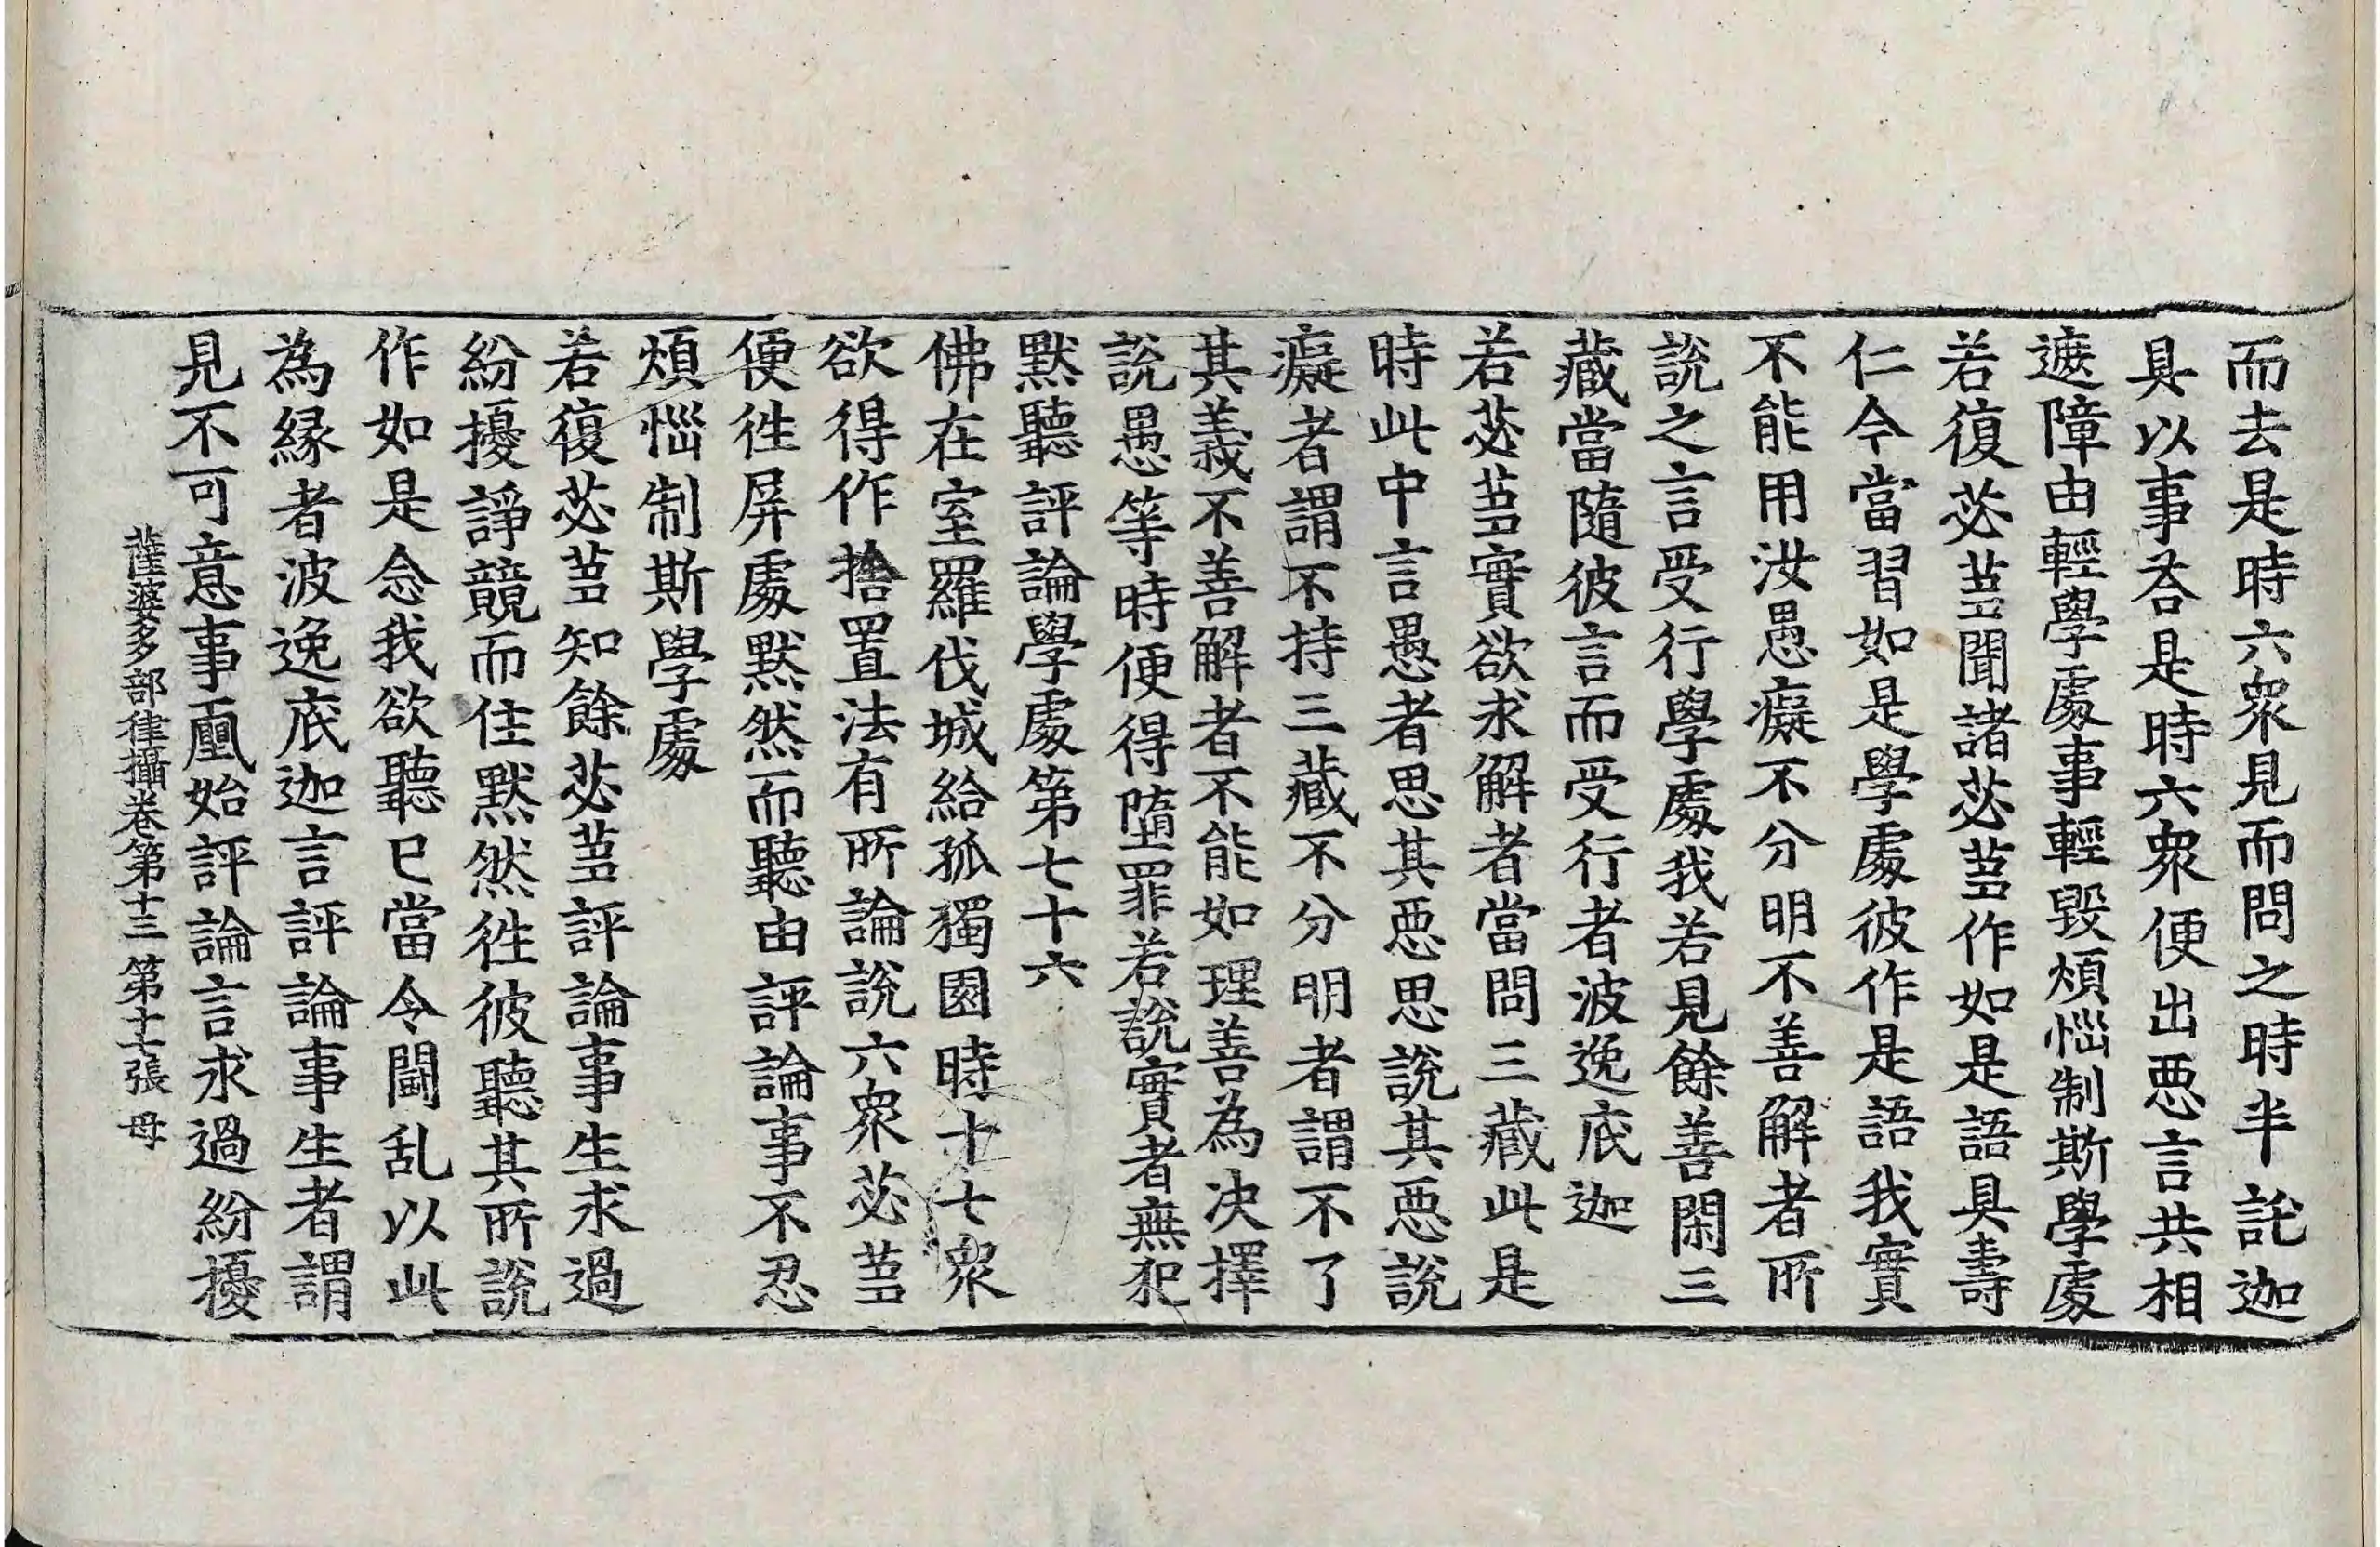 而去是時六衆見而問之時半託迦
具以事荅是時六衆便出惡言共相
遮障由輕學處事輕毀煩惱制斯學處
若復苾芻聞諸苾芻作如是語具壽
仁今當習如是學處彼作是語我實
不能用汝愚癡不分明不善解者所
說之言受行學處我若見餘善閑三
藏當隨彼言而受行者波逸底迦
若苾芻實欲求解者當問三藏此是
時此中言愚者思其惡思說其惡說
癡者謂不持三藏不分明者謂不了
其義不善解者不能如理善為決擇
說愚等時便得墮罪若說實者無犯
默聽評論學處第七十六
佛在室羅伐城給孤獨園時十七衆
欲得作捨置法有所論說六衆苾芻
便往屏處默然而聽由評論事不忍
煩惱制斯學處
若復苾芻知餘苾芻評論事生求過
紛擾諍競而住默然往彼聽其所說
作如是念我欲聽已當令鬪乱以此
為緣者波逸底迦言評論事生者謂
見不可意事㓻始評論言求過紛擾
薩婆多部律攝卷第十三 第十七張 母